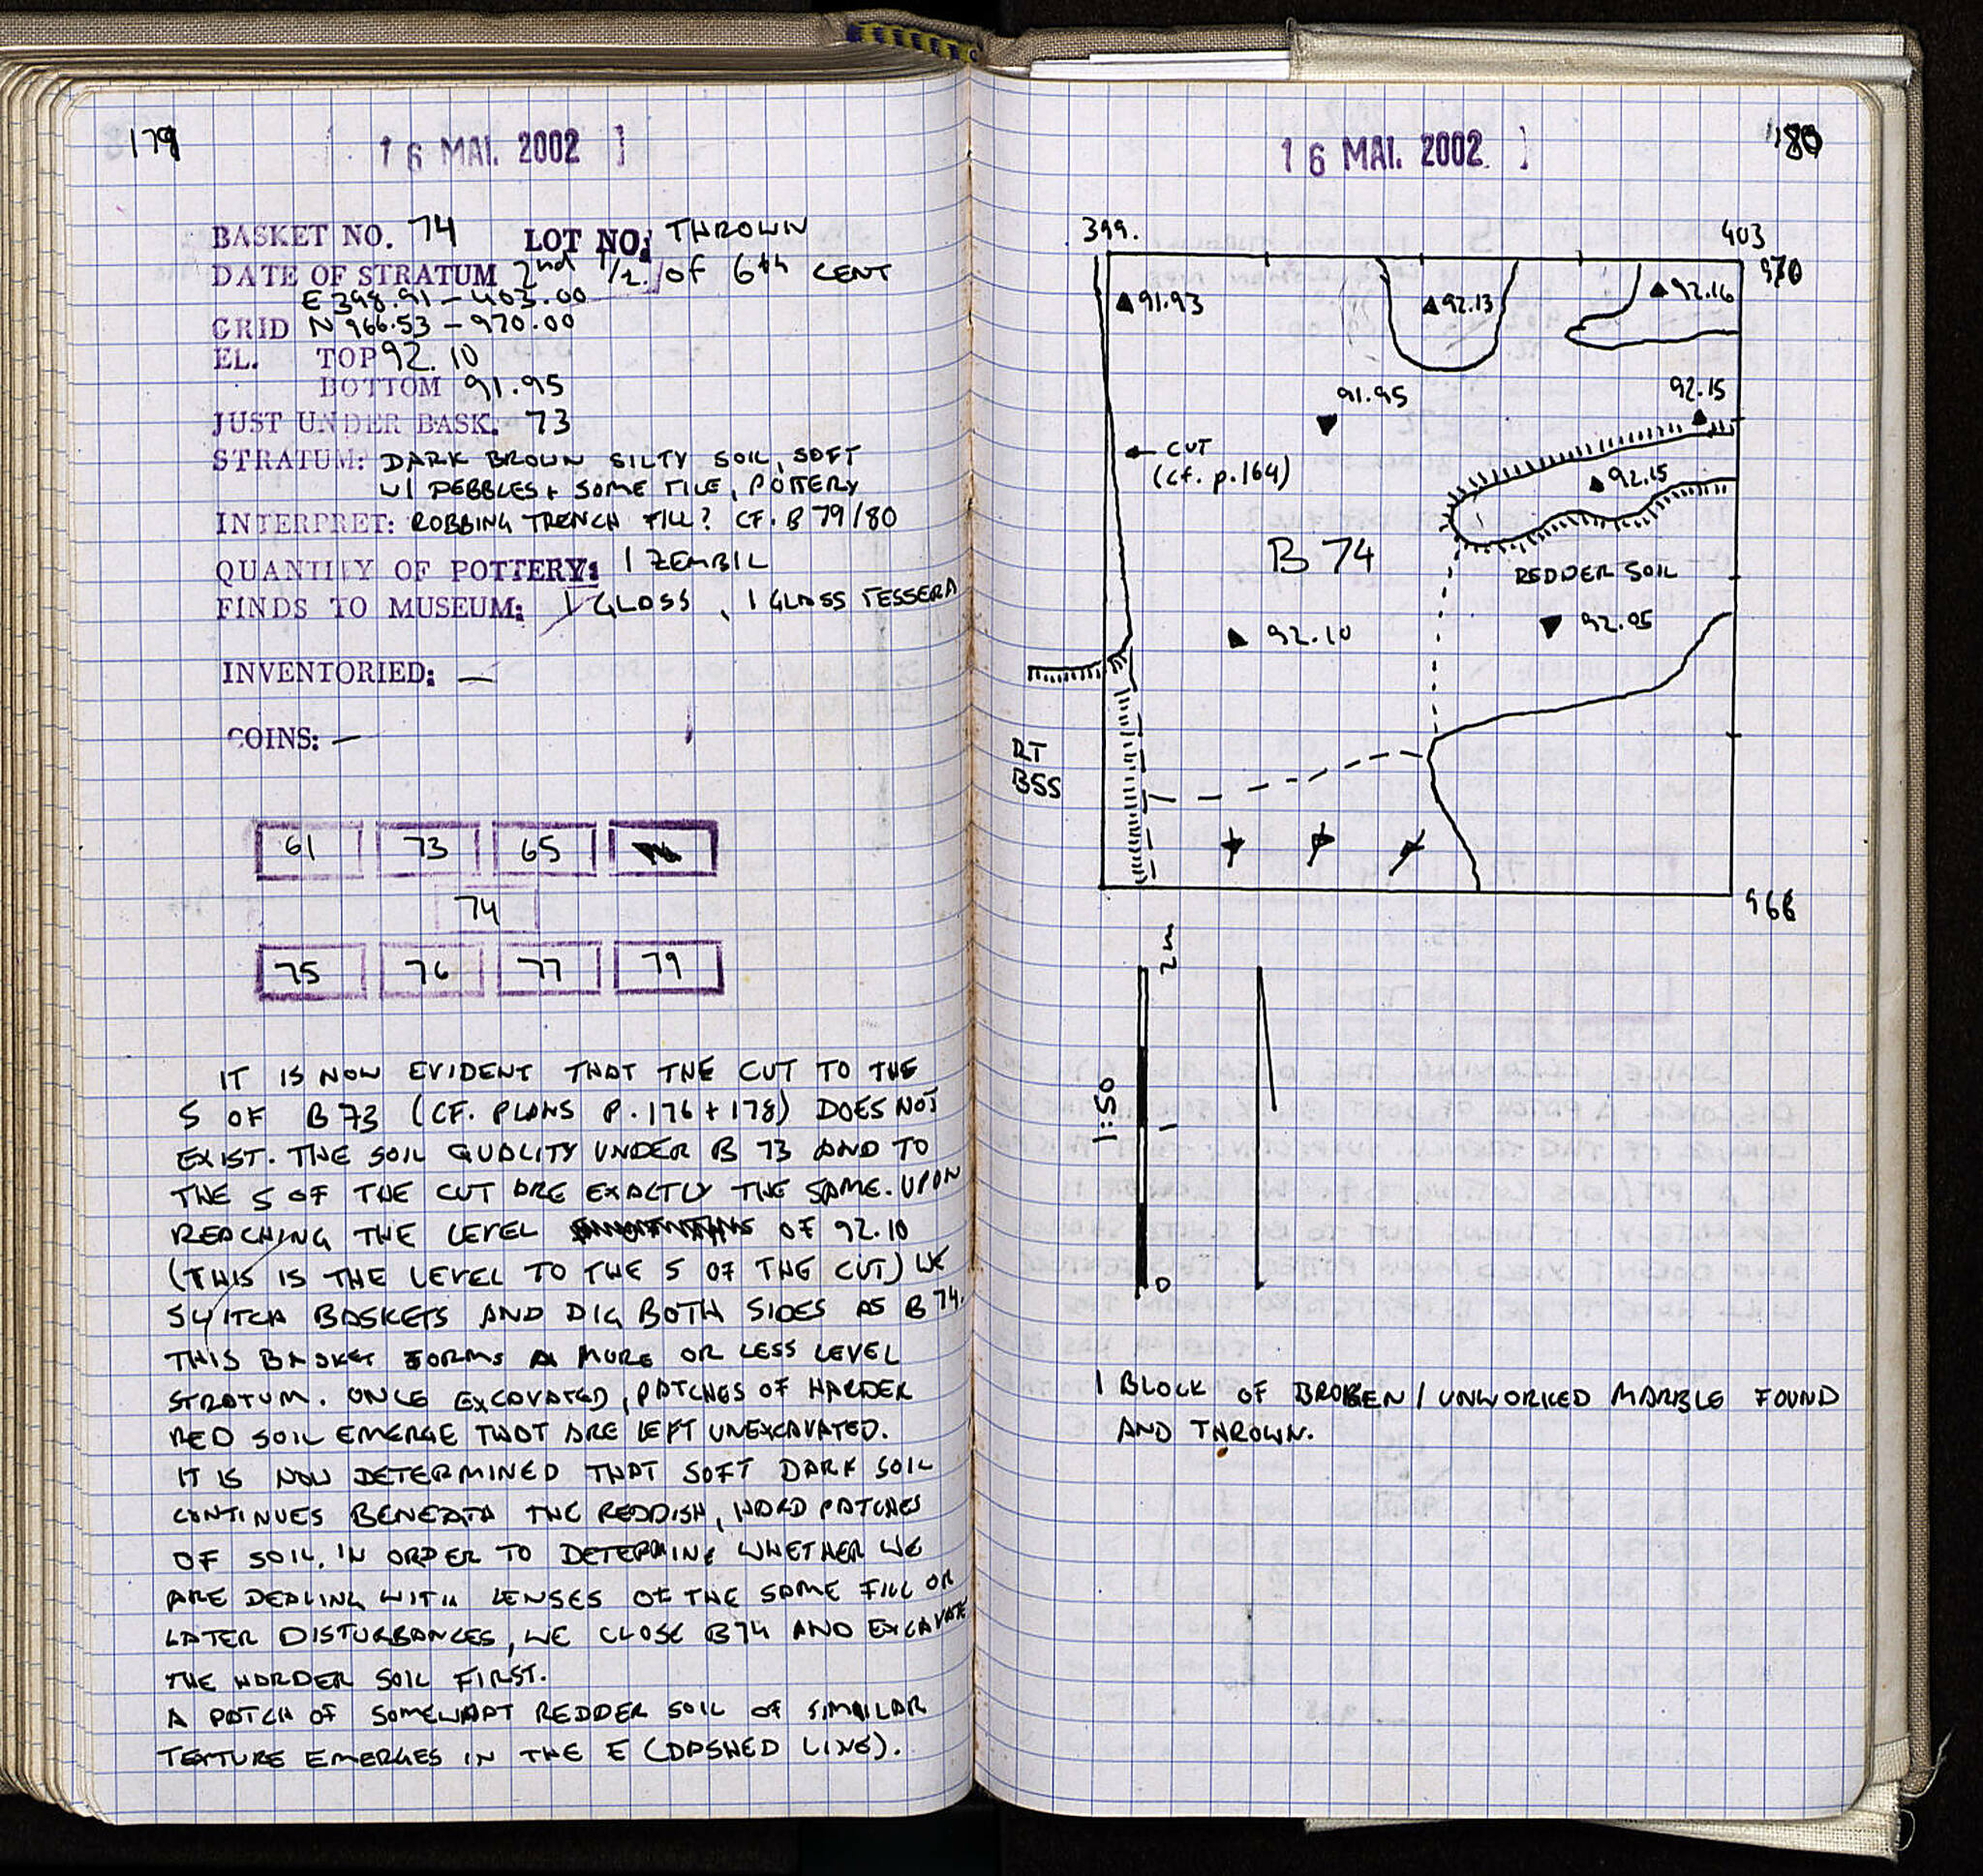 179
16 MAI. 2002
BASKET NO. 74 LOT NO: THROWN
DATE OF STRATUM 2nd 1/2 of 6th CENT
E 398.91 - 403.00
GRID N 966.53 - 970.00
EL. TOP 92.10
BOTTOM 91.95
JUST UNDER BASK. 73
STRATUM: DARK BROWN SILTY SOIL, SOFT
W/ PEBBLES + SOME TILE, POTTERY
INTERPRET: ROBBING TRENCH FILL? CF. B 79/80
QUANTITY OF POTTERY: 1 ZEMBIL
FINDS TO MUSEUM: 1 GLASS, 1 GLASS TESSERA
INVENTORIED: —
COINS: —
61 73 65
74
75 76 77 79
IT IS NOW EVIDENT THAT THE CUT TO THE
S OF B 73 (CF. PLANS P. 176 + 178) DOES NOT
EXIST. THE SOIL QUALITY UNDER B 73 AND TO
THE S OF THE CUT ARE EXACTLY THE SAME. UPON
REACHING THE LEVEL OF 92.10
(THIS IS THE LEVEL TO THE S OF THE CUT) WE
SWITCH BASKETS AND DIG BOTH SIDES AS B 74.
THIS BASKET FORMS A MORE OR LESS LEVEL
STRATUM. ONCE EXCAVATED, PATCHES OF HARDER
RED SOIL EMERGE THAT ARE LEFT UNEXCAVATED.
IT IS NOW DETERMINED THAT SOFT DARK SOIL
CONTINUES BENEATH THE REDDISH, HARD PATCHES
OF SOIL. IN ORDER TO DETERMINE WHETHER WE
ARE DEALING WITH LENSES OF THE SAME FILL OR
LATER DISTURBANCES, WE CLOSE B74 AND EXCAVATE
THE HARDER SOIL FIRST.
A PATCH OF SOMEWHAT REDDER SOIL OF SIMILAR
TEXTURE EMERGES IN THE E (DASHED LINE).
180
16 MAI. 2002
399.
403
970
91.93
92.13
92.16
91.95
92.15
CUT
(cf. p.164)
92.15
B 74
REDDER SOIL
92.10
92.05
RT
BSS
966
2m
1:50
0
1 BLOCK OF BROKEN / UNWORKED MARBLE FOUND
AND THROWN.